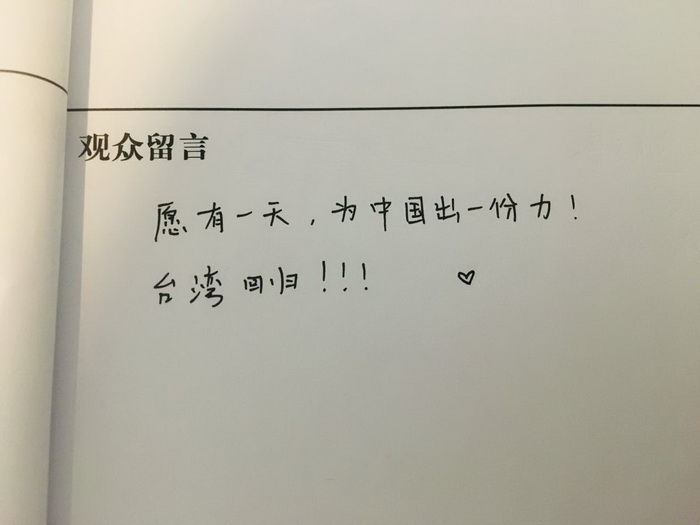 观众留言
愿有一天，为中国出一份力！
台湾回归！！！ ♡